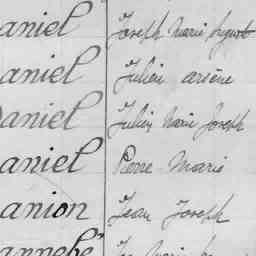 aniel Joseph Marie
aniel Julien arsène
Daniel Julien Marie Joseph
aniel Pierre Marie
anion Jean Joseph